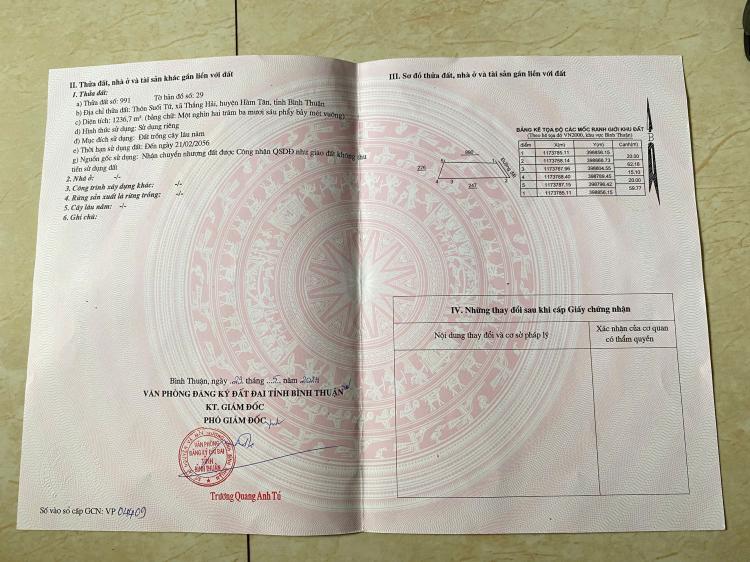 II. Thửa đất, nhà ở và tài sản khác gắn liền với đất
1. Thửa đất:
a) Thửa đất số: 991 Tờ bản đồ số: 29
b) Địa chỉ thửa đất: Thôn Suối Tứ, xã Thắng Hải, huyện Hàm Tân, tỉnh Bình Thuận
c) Diện tích: 1236,7 m² (bằng chữ: Một nghìn hai trăm ba mươi sáu phẩy bảy mét vuông)
d) Hình thức sử dụng: Sử dụng riêng
đ) Mục đích sử dụng: Đất trồng cây lâu năm
e) Thời hạn sử dụng đất: Đến ngày 21/02/2056
g) Nguồn gốc sử dụng: Nhận chuyển nhượng đất được Công nhận QSDĐ như giao đất không thu
tiền sử dụng đất
2. Nhà ở: -/-
3. Công trình xây dựng khác: -/-
4. Rừng sản xuất là rừng trồng: -/-
5. Cây lâu năm: -/-
6. Ghi chú:
Bình Thuận, ngày 29 tháng 5 năm 2024
VĂN PHÒNG ĐĂNG KÝ ĐẤT ĐAI TỈNH BÌNH THUẬN
KT. GIÁM ĐỐC
PHÓ GIÁM ĐỐC
VĂN PHÒNG
ĐĂNG KÝ ĐẤT ĐAI
TỈNH
BÌNH THUẬN
Trương Quang Anh Tú
Số vào sổ cấp GCN: VP 04409
III. Sơ đồ thửa đất, nhà ở và tài sản gắn liền với đất
B
BẢNG KÊ TỌA ĐỘ CÁC MỐC RANH GIỚI KHU ĐẤT
(Theo hệ tọa độ VN2000, khu vực Bình Thuận)
điểm X(m) Y(m) Cạnh(m)
1 1173785.11 398856.15
20.00
2
62.16
3
15.10
4
20.00
5
59.77
1 398856.15
990
226
247
Đường
IV. Những thay đổi sau khi cấp Giấy chứng nhận
Nội dung thay đổi và cơ sở pháp lý
Xác nhận của cơ quan
có thẩm quyền